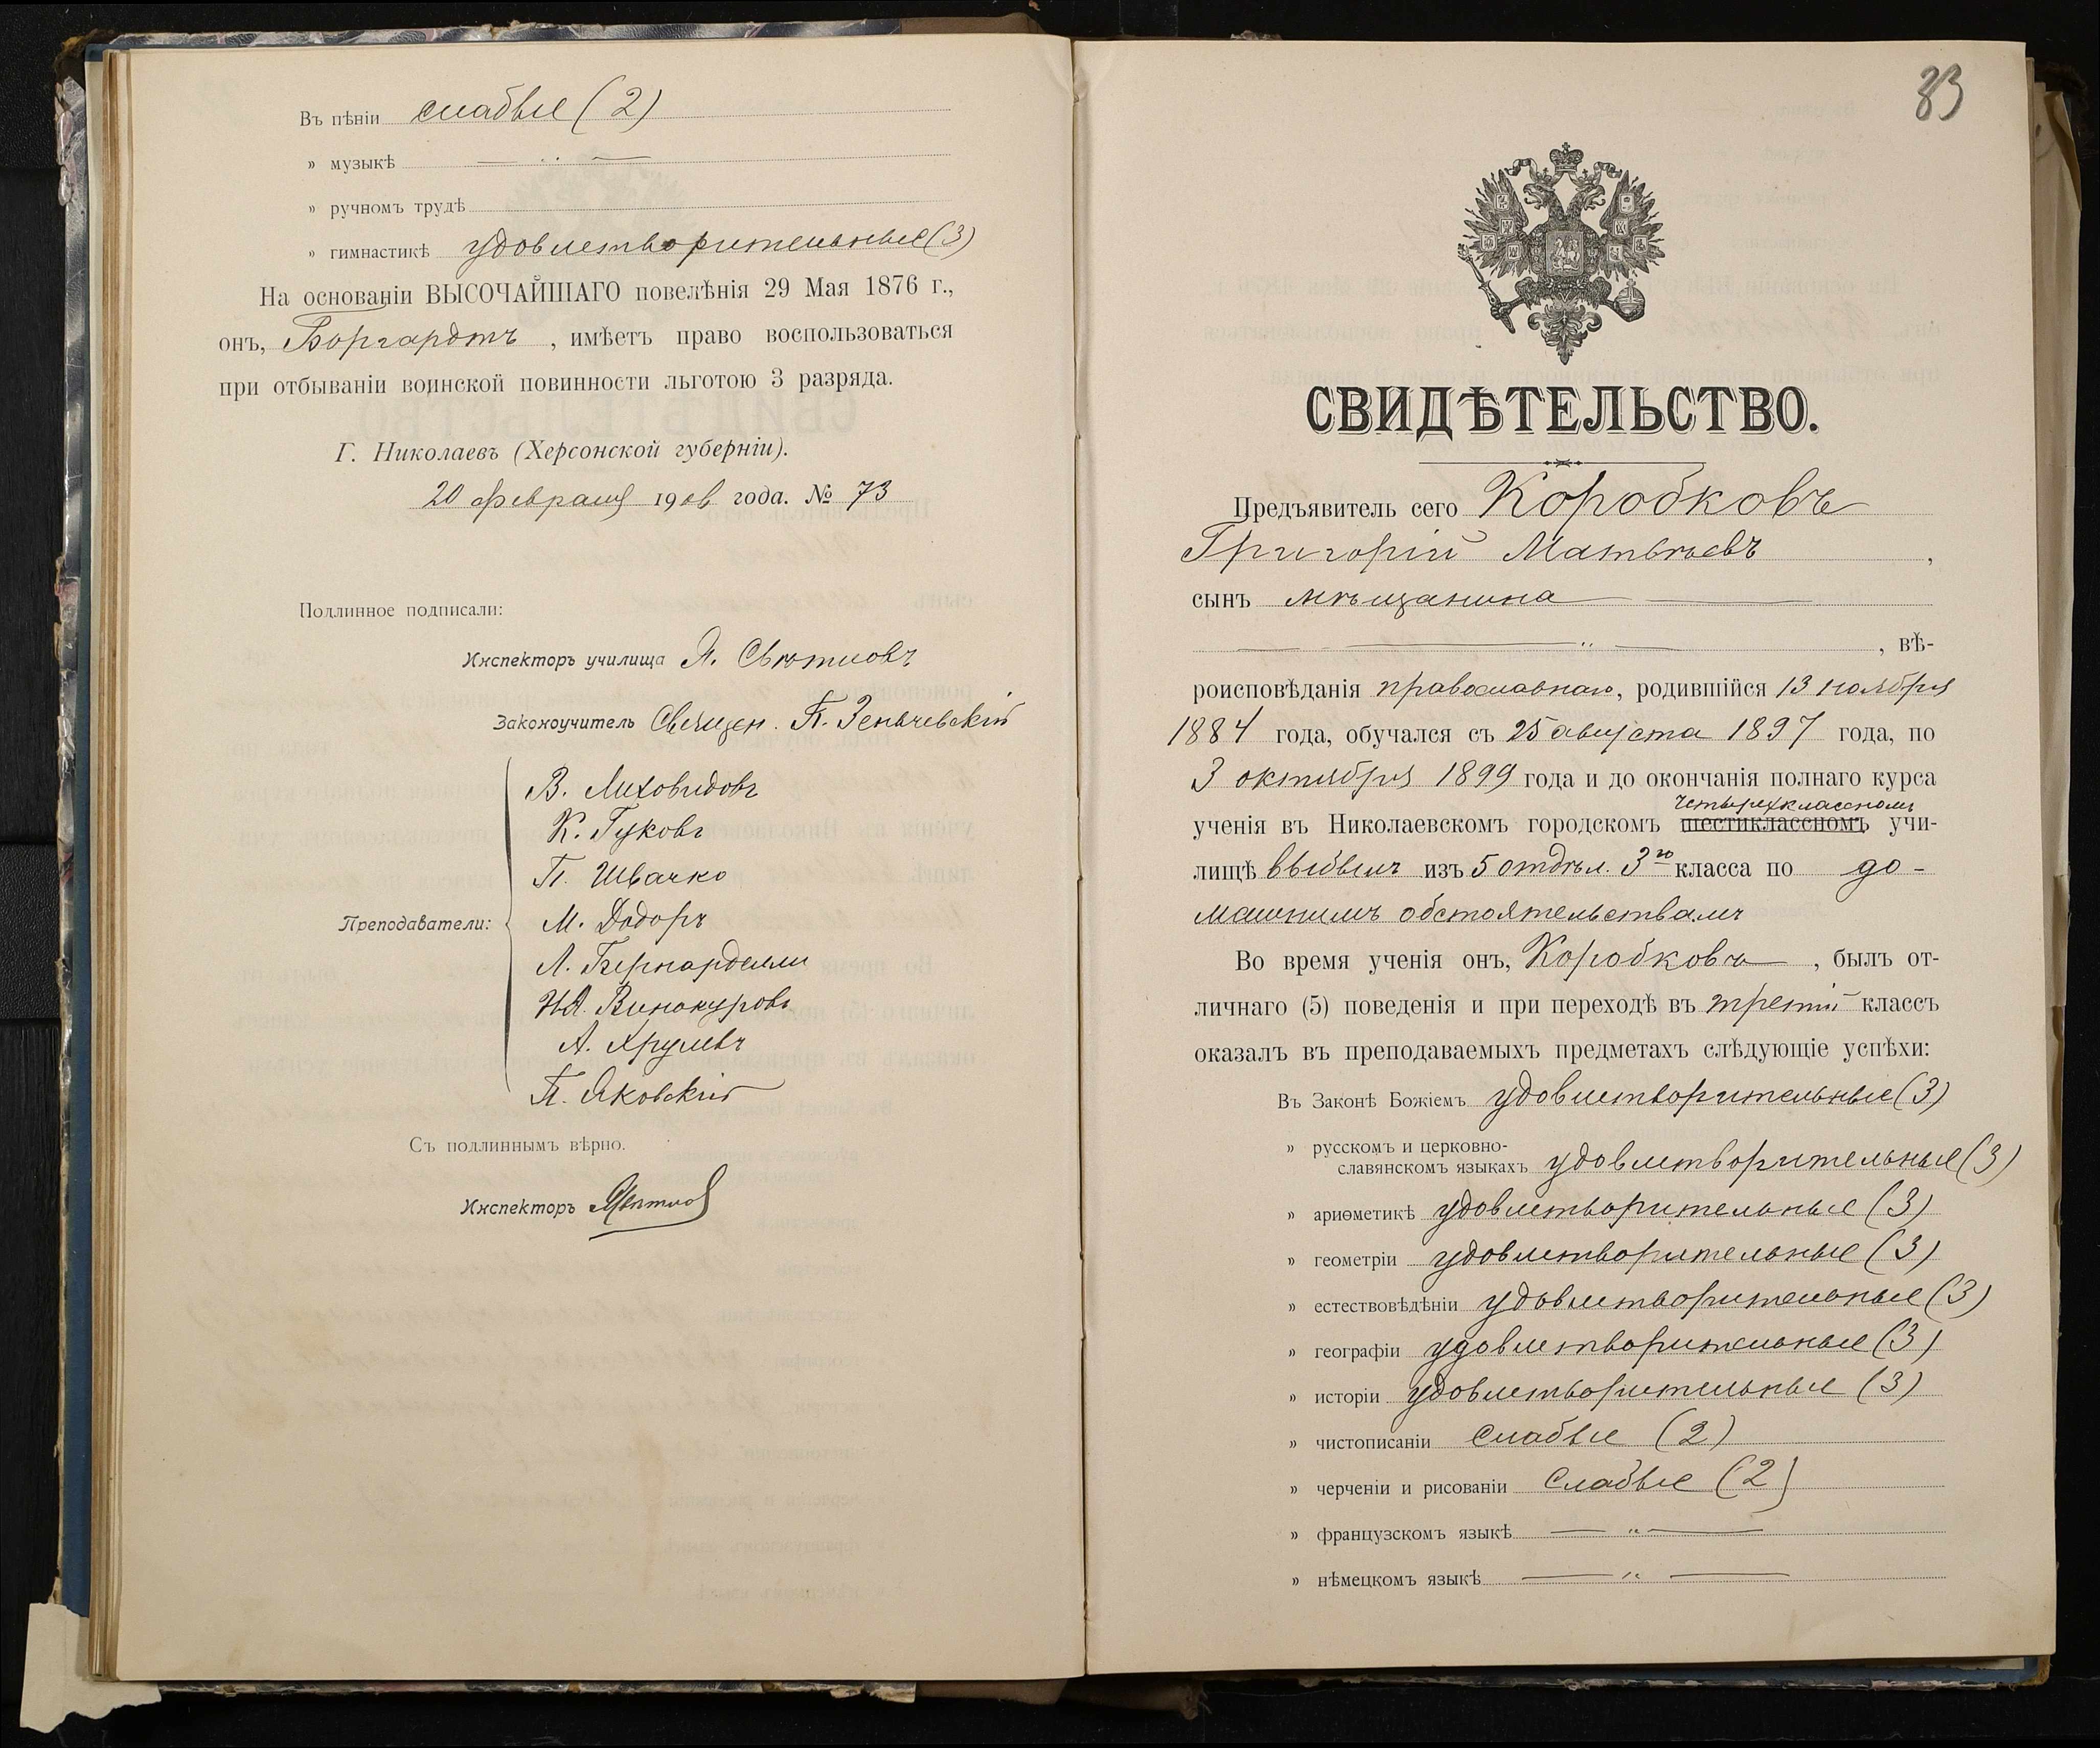 Въ пѣніи слабые (2)
» музыкѣ — " —
» ручномъ трудѣ
» гимнастикѣ удовлетворительные (3)
На основаніи ВЫСОЧАЙШАГО повелѣнія 29 Мая 1876 г.,
онъ, Боргардтъ, имѣетъ право воспользоваться
при отбываніи воинской повинности льготою 3 разряда.
Г. Николаевъ (Херсонской губерніи).
20 февраля 1906 года. № 73
Подлинное подписали:
Инспекторъ училища Я. Свѣтловъ
Законоучитель Священ. П. Зеньчевскій
Преподаватели:
В. Лиховидовъ
К. Гуковъ
П. Швачко
М. Додоръ
Л. Бернарделли
Винокуровъ
А. Хрулевъ
П. Яковскій
Съ подлиннымъ вѣрно.
Инспекторъ Свѣтлов
83
СВИДѢТЕЛЬСТВО.
Предъявитель сего Коробковъ
Григорій Матвѣевъ,
сынъ мѣщанина —
— " —, вѣ-
роисповѣданія православнаго, родившійся 13 ноября
1884 года, обучался съ 25 августа 1897 года, по
3 октября 1899 года и до окончанія полнаго курса
четырехклассномъ
ученія въ Николаевскомъ городскомъ шестиклассномъ учи-
лищѣ выбылъ изъ 5 отдѣл. 3го класса по до-
машнимъ обстоятельствамъ
Во время ученія онъ, Коробковъ, былъ от-
личнаго (5) поведенія и при переходѣ въ третій классъ
оказалъ въ преподаваемыхъ предметахъ слѣдующіе успѣхи:
Въ Законѣ Божіемъ удовлетворительные (3)
» русскомъ и церковно-
славянскомъ языкахъ удовлетворительные (3)
» ариѳметикѣ удовлетворительные (3)
» геометріи удовлетворительные (3)
» естествовѣдѣніи удовлетворительные (3)
» географіи удовлетворительные (3)
» исторіи удовлетворительные (3)
» чистописаніи слабые (2)
» черченіи и рисованіи слабые (2)
» французскомъ языкѣ — " —
» нѣмецкомъ языкѣ — " —